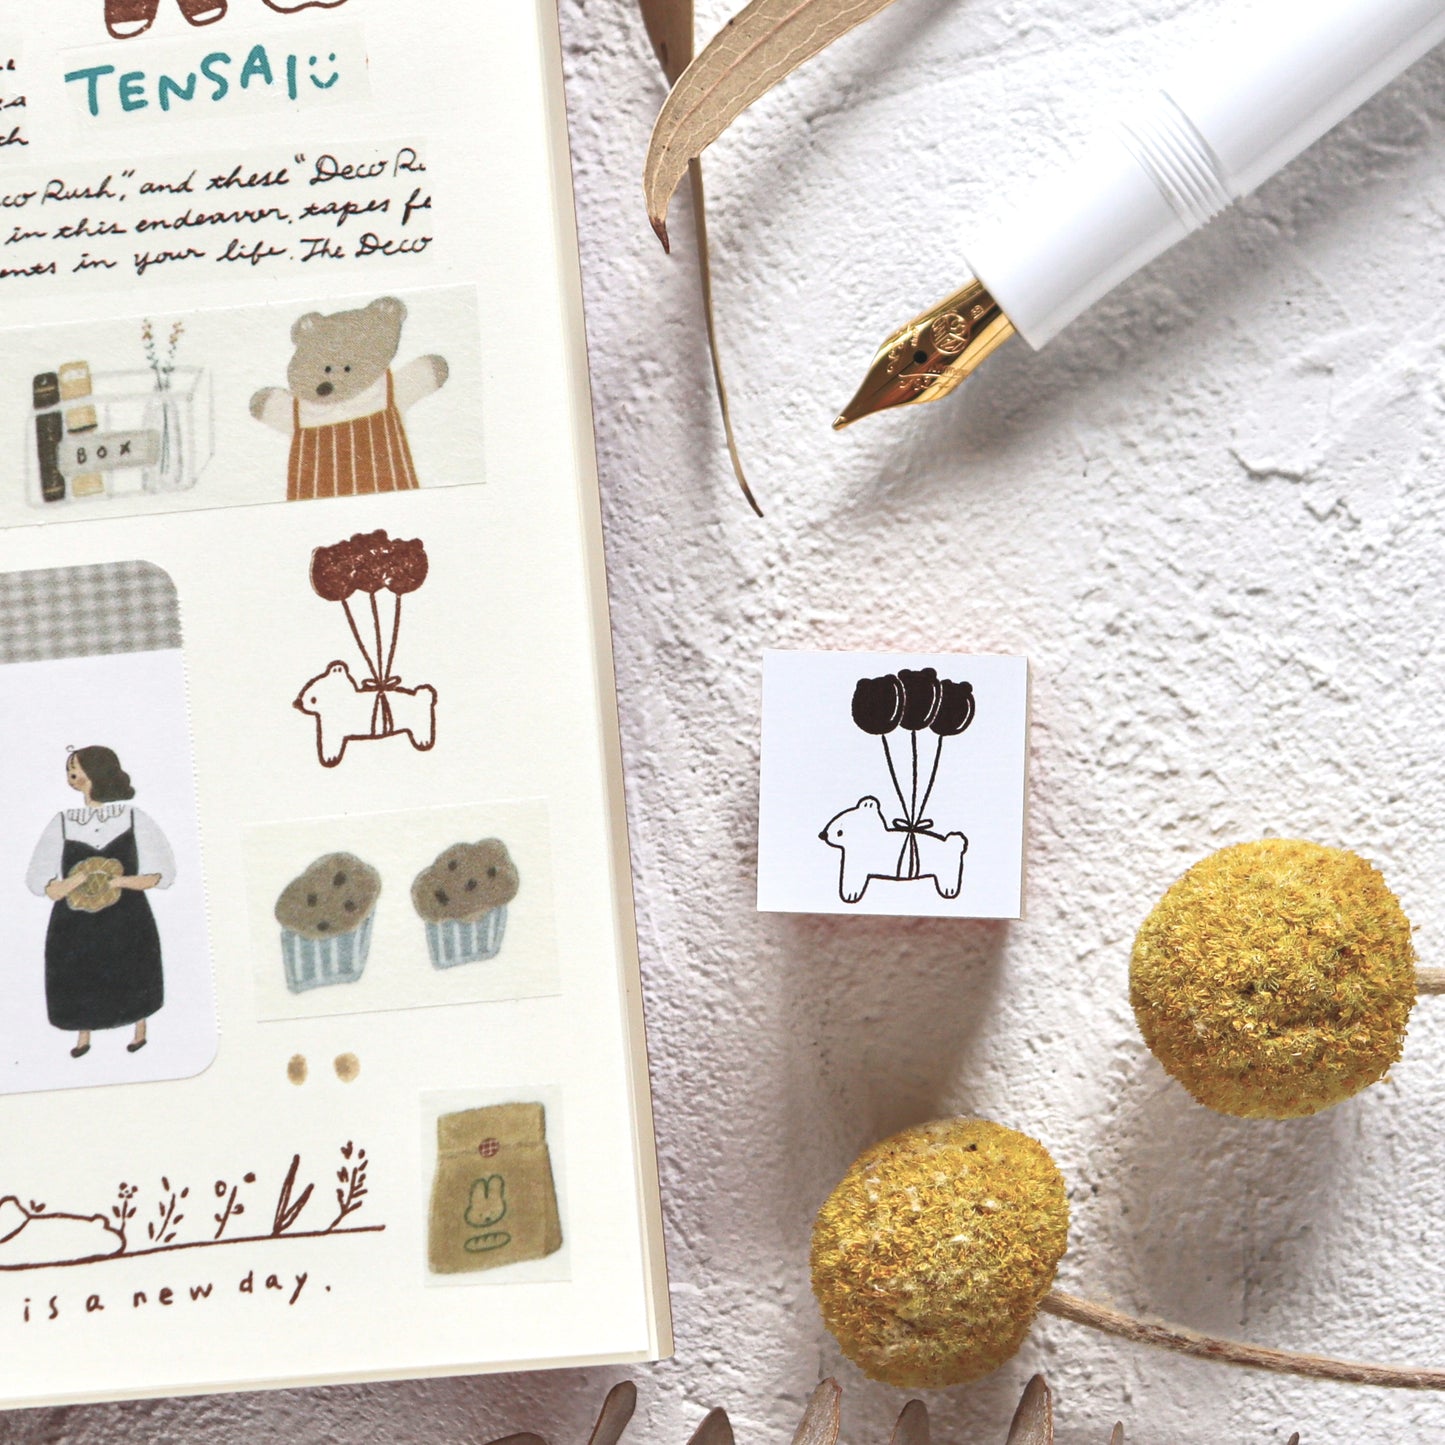 TENSAI
th
co Rush", and these "Deco Ru
in this endeavor, tapes fe
ents in your life. The Deco
BOX
is a new day.